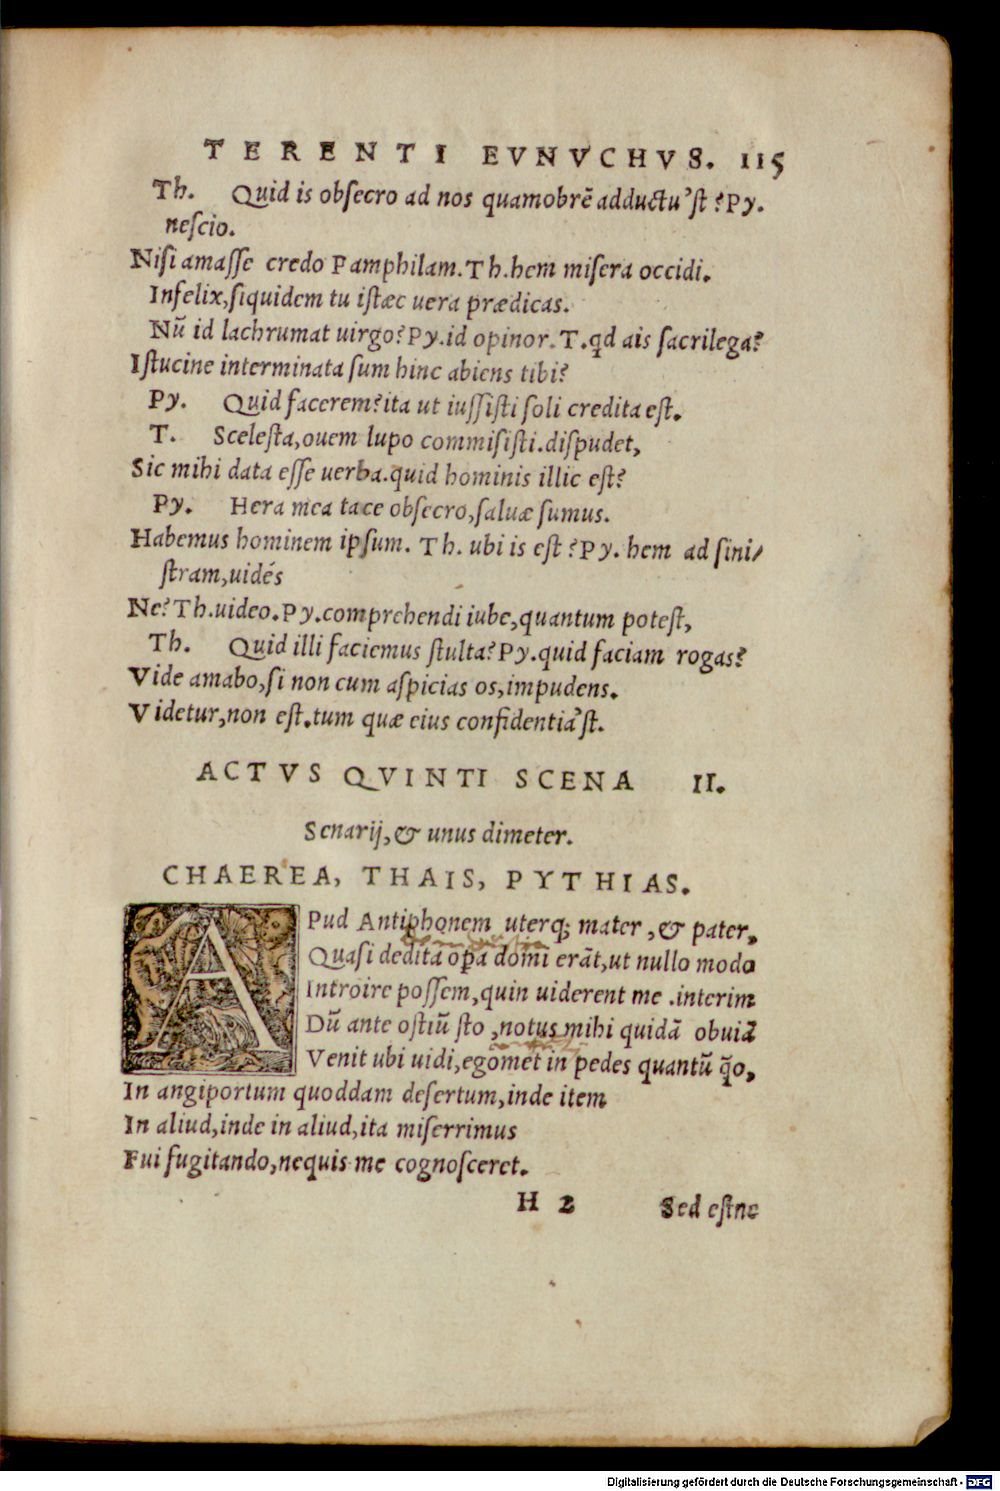 TERENTI EVNVCHVS. 115
Th. Quid is obſecro ad nos quamobrē adductu'ſt? Py.
neſcio.
Niſi amaſſe credo Pamphilam. Th. hem miſera occidi.
Infelix, ſiquidem tu iſtæc uera prædicas.
Nũ id lachrumat uirgo? Py. id opinor. T. qd ais ſacrilega?
Iſtucine interminata ſum hinc abiens tibi?
Py. Quid facerem? ita ut iuſſiſti ſoli credita eſt.
T. Sceleſta, ouem lupo commiſiſti. diſpudet,
Sic mihi data eſſe uerba. quid hominis illic eſt?
Py. Hera mea tace obſecro, ſaluæ ſumus.
Habemus hominem ipſum. Th. ubi is eſt? Py. hem ad ſini/
ſtram, uidés
Ne? Th. uideo. Py. comprehendi iube, quantum poteſt,
Th. Quid illi faciemus ſtulta? Py. quid faciam rogas?
Vide amabo, ſi non cum aſpicias os, impudens.
Videtur, non eſt. tum quæ eius confidentia'ſt.
ACTVS QVINTI SCENA II.
Senarij, & unus dimeter.
CHAEREA, THAIS, PYTHIAS.
APud Antiphonem uterq; mater, & pater,
Quaſi dedita opa domi erãt, ut nullo modo
Introire poſſem, quin uiderent me. interim
Dũ ante oſtiũ ſto, notus mihi quidã obuiã
Venit ubi uidi, egomet in pedes quantũ q̃o,
In angiportum quoddam deſertum, inde item
In aliud, inde in aliud, ita miſerrimus
Fui fugitando, nequis me cognoſceret.
H 2 Sed eſtne
Digitalisierung gefördert durch die Deutsche Forschungsgemeinschaft - DFG